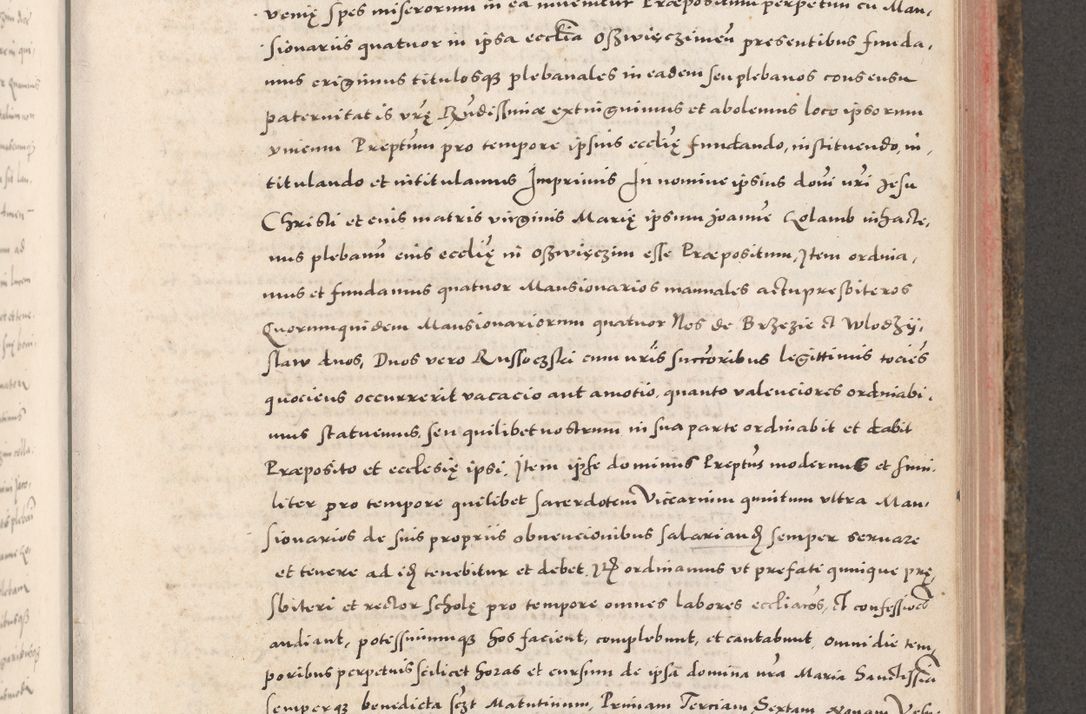 venię spes miserorum in ea invenitur Præpositum perpetuu cu Man,
sionariis quatuor in ipsa ecclia Oszwięczimeñ presentibus funda,
mus erigimus titulosqz plebanales in eadem seu plebanos consensu
paternitatis vrę Rndissimæ extinguimus et abolemus loco ipsorum
vnenum Preptum pro tempore ipsius ecclię fundando, instituendo, in,
titulando et intitulamus Imprimis In nomine ipsius domi nri Jesu
Christi et eius matris virginis Marię ipsum Joanne Golamb infracte,
nus plebanu eius ecclię in Oszwięczim esse Præpositum, Item ordina,
mus et fundamus quatuor Mansionarios manuales actu presbiteros
Quorumquidem Mansionariorum quatuor Nos de Brzezie et Wlodzÿ,
slaw duos, Duos vero Russoczski cum nris succoribus legittimis tocies
quociens occurrerit vacacio aut amotio, quanto valenciores ordinabi,
mus statuemus, seu quilibet nostrum in sua parte ordinabit et dabit
Præposito et ecclesię ipsi. Item ipse dominus Preptus modernus et simi,
liter pro tempore quilibet sacerdotem Viccarium quintum vltra Man,
sionarios de suis propriis obvencionibus salariand semper servare
et tenere ad id tenebitur et debet. Itē ordinamus vt prefati quinque prę,
sbiteri et rector scholę pro tempore omnes labores ecclīacos, et confessiones
audiant, potissimumqz hos facient, complebunt, et cantabunt, omni die tem,
poribus perpetuis scilicet horas et cursum de ipsa domina nra Maria Sanctissima
semperqz benedicta sczt Matutinum, Primam Terciam Sextam Nonam Vesp,